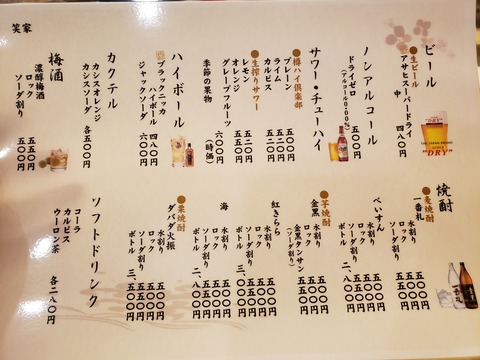 笑家
ビール
●生ビール
アサヒスーパードライ
中 四八〇円
ノンアルコール
ドライゼロ
(アルコール0.00%) 五〇〇円
サワー・チューハイ
●樽ハイ倶楽部
プレーン 五〇〇円
ライム 五二〇円
カルピス 五二〇円
●生搾りサワー
レモン 五五〇円
オレンジ 五五〇円
グレープフルーツ 六〇〇円
季節の果物 (時価)
ハイボール
ブラックニッカ
ハイボール 四八〇円
ジャックソーダ 六〇〇円
カクテル
カシスオレンジ
カシスソーダ 各五〇〇円
梅酒
濃醇梅酒
ロック 五五〇円
ソーダ割り 五五〇円
"DRY"
焼酎
●麦焼酎
一番札
水割り 五〇〇円
ロック 五〇〇円
ソーダ割り 五五〇円
べいすん
水割り 五〇〇円
ロック 五〇〇円
ソーダ割り 五五〇円
ボトル
●芋焼酎
金黒
水割り 五〇〇円
ロック 五〇〇円
金黒タンサン
(ソーダ割り) 五五〇円
紅きらら
水割り
ロック
ソーダ割り
ボトル
海
水割り
ロック
ソーダ割り
ボトル
●栗焼酎
ダバダ火振
水割り
ロック
ソーダ割り
ボトル
ソフトドリンク
コーラ
カルピス
ウーロン茶 各二八〇円